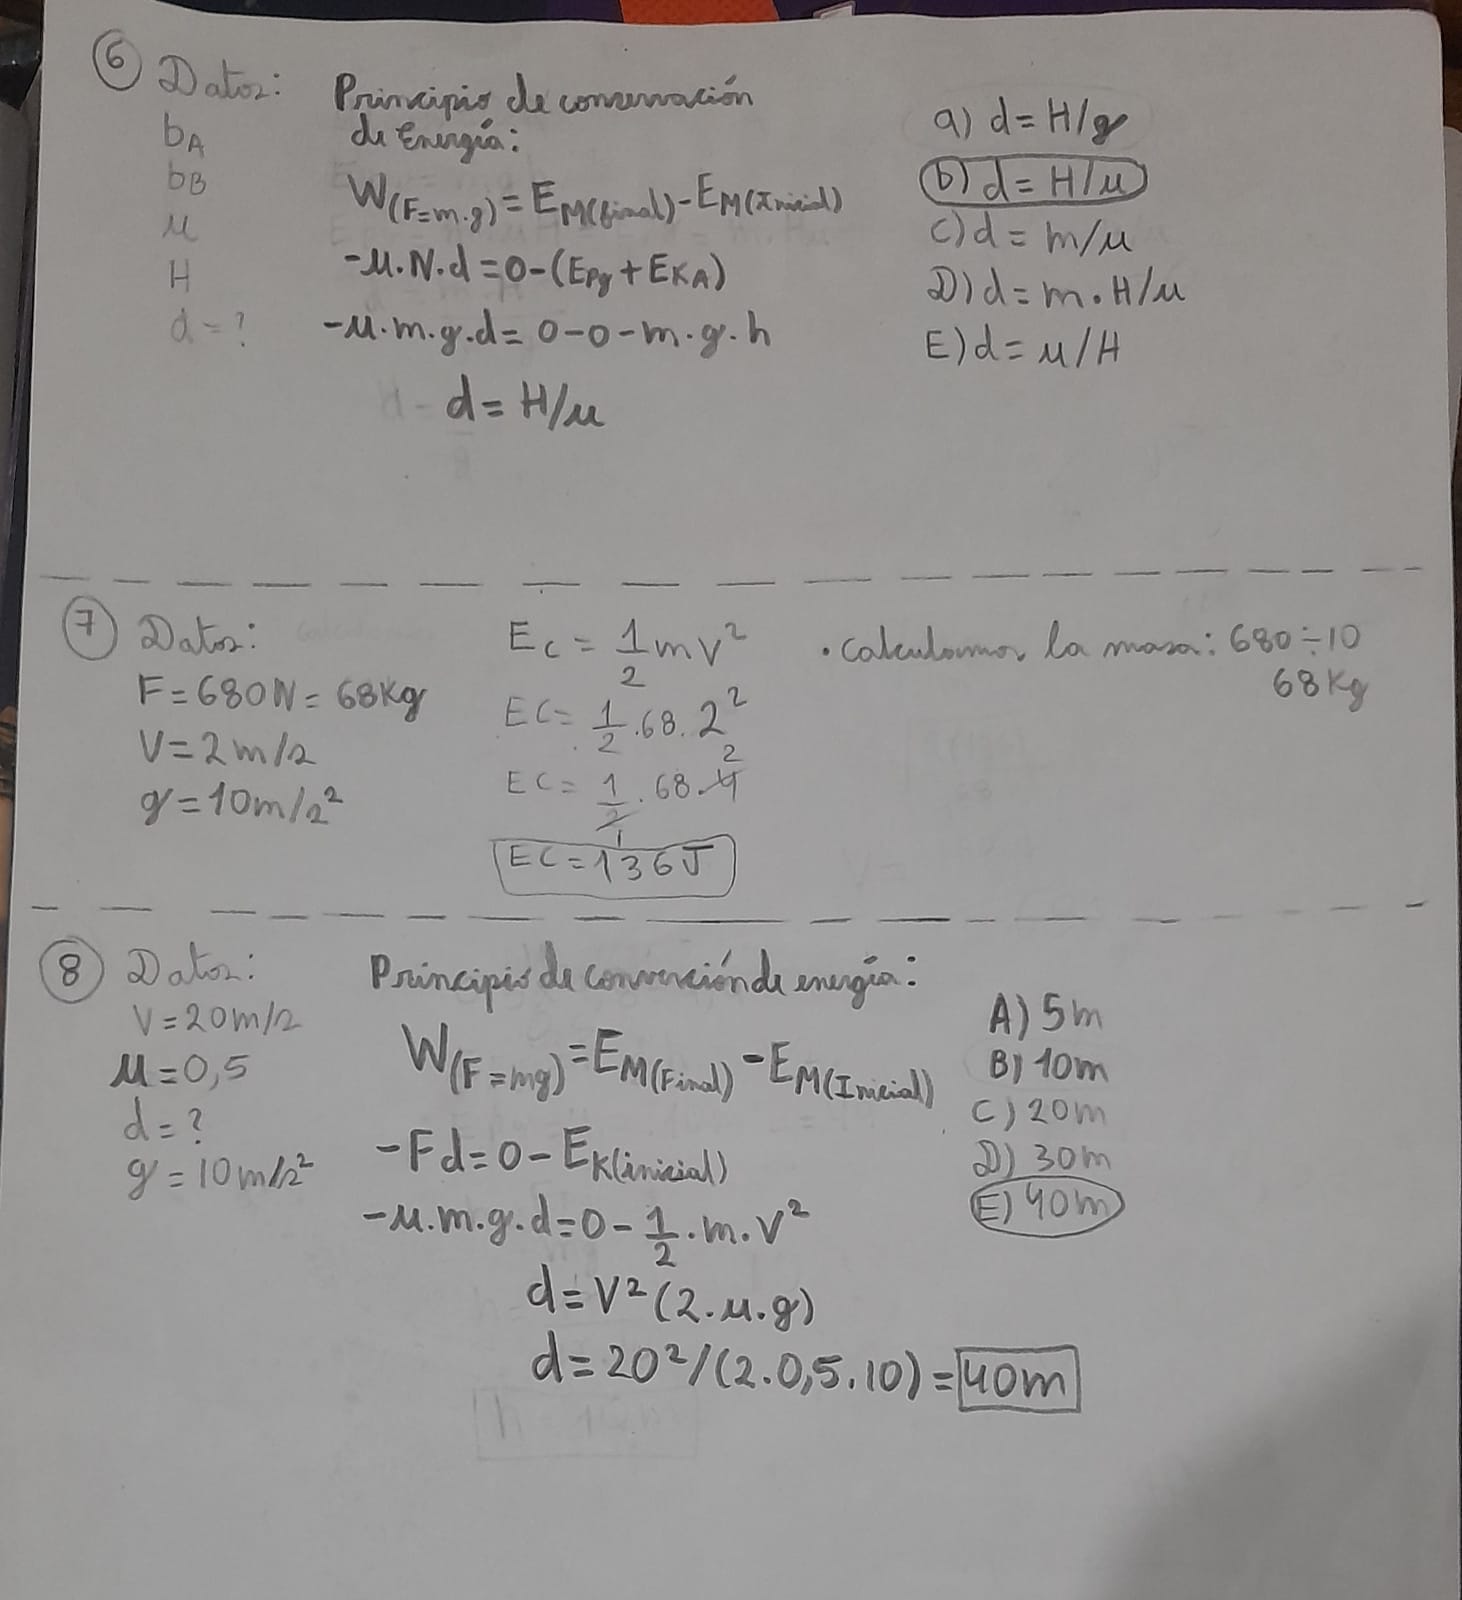 6
Datos:
bA
bB
µ
H
d = ?
Principio de conservación
de Energía:
W(F=m.g) = EM(final) - EM(Inicial)
-µ.N.d = 0-(EPg + EKA)
-µ.m.g.d = 0-0-m.g.h
d = H/µ
a) d = H/g
b) d = H/µ
C) d = m/µ
D) d = m.H/µ
E) d = µ/H
7
Datos:
F = 680N = 68Kg
V = 2m/s
g = 10m/s²
Ec = 1/2 mv²
EC = 1/2 .68. 2²
EC = 1/2 . 68. 4 2
1
EC = 136J
. calculamos la masa: 680÷10
68Kg
8
Datos:
V = 20m/s
µ = 0,5
d = ?
g = 10m/s²
Principio de converciónde energía:
W(F=mg) = EM(Final) - EM(Inicial)
-Fd = 0 - EK(inicial)
-µ.m.g.d = 0 - 1/2 . m. V²
d = V² (2.µ.g)
d = 20²/(2.0,5.10) = 40m
A) 5m
B) 10m
C) 20m
D) 30m
E) 40m